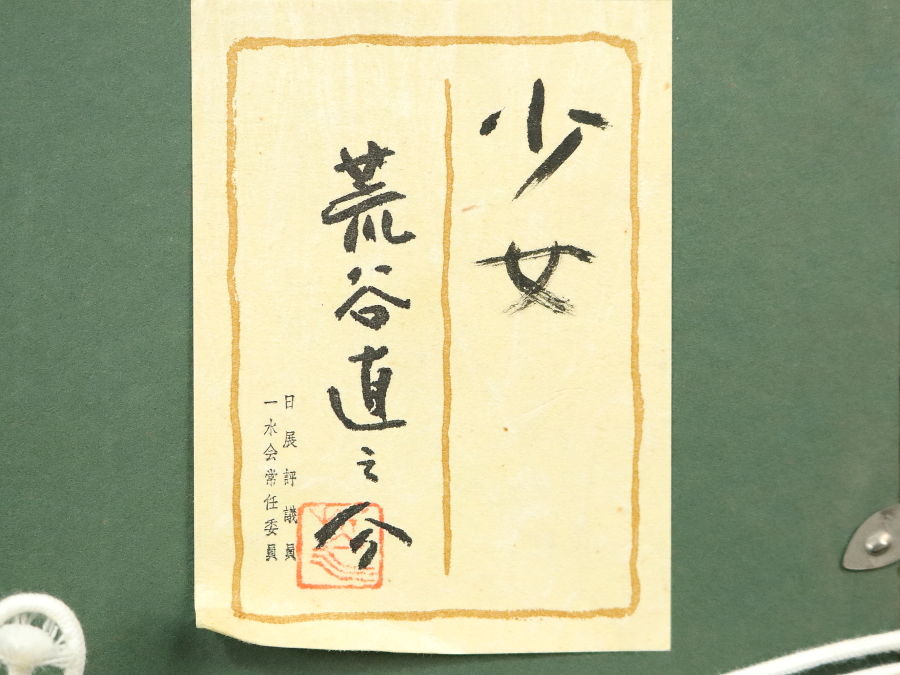 少女
荒谷直之介
日展評議員
一水会常任委員